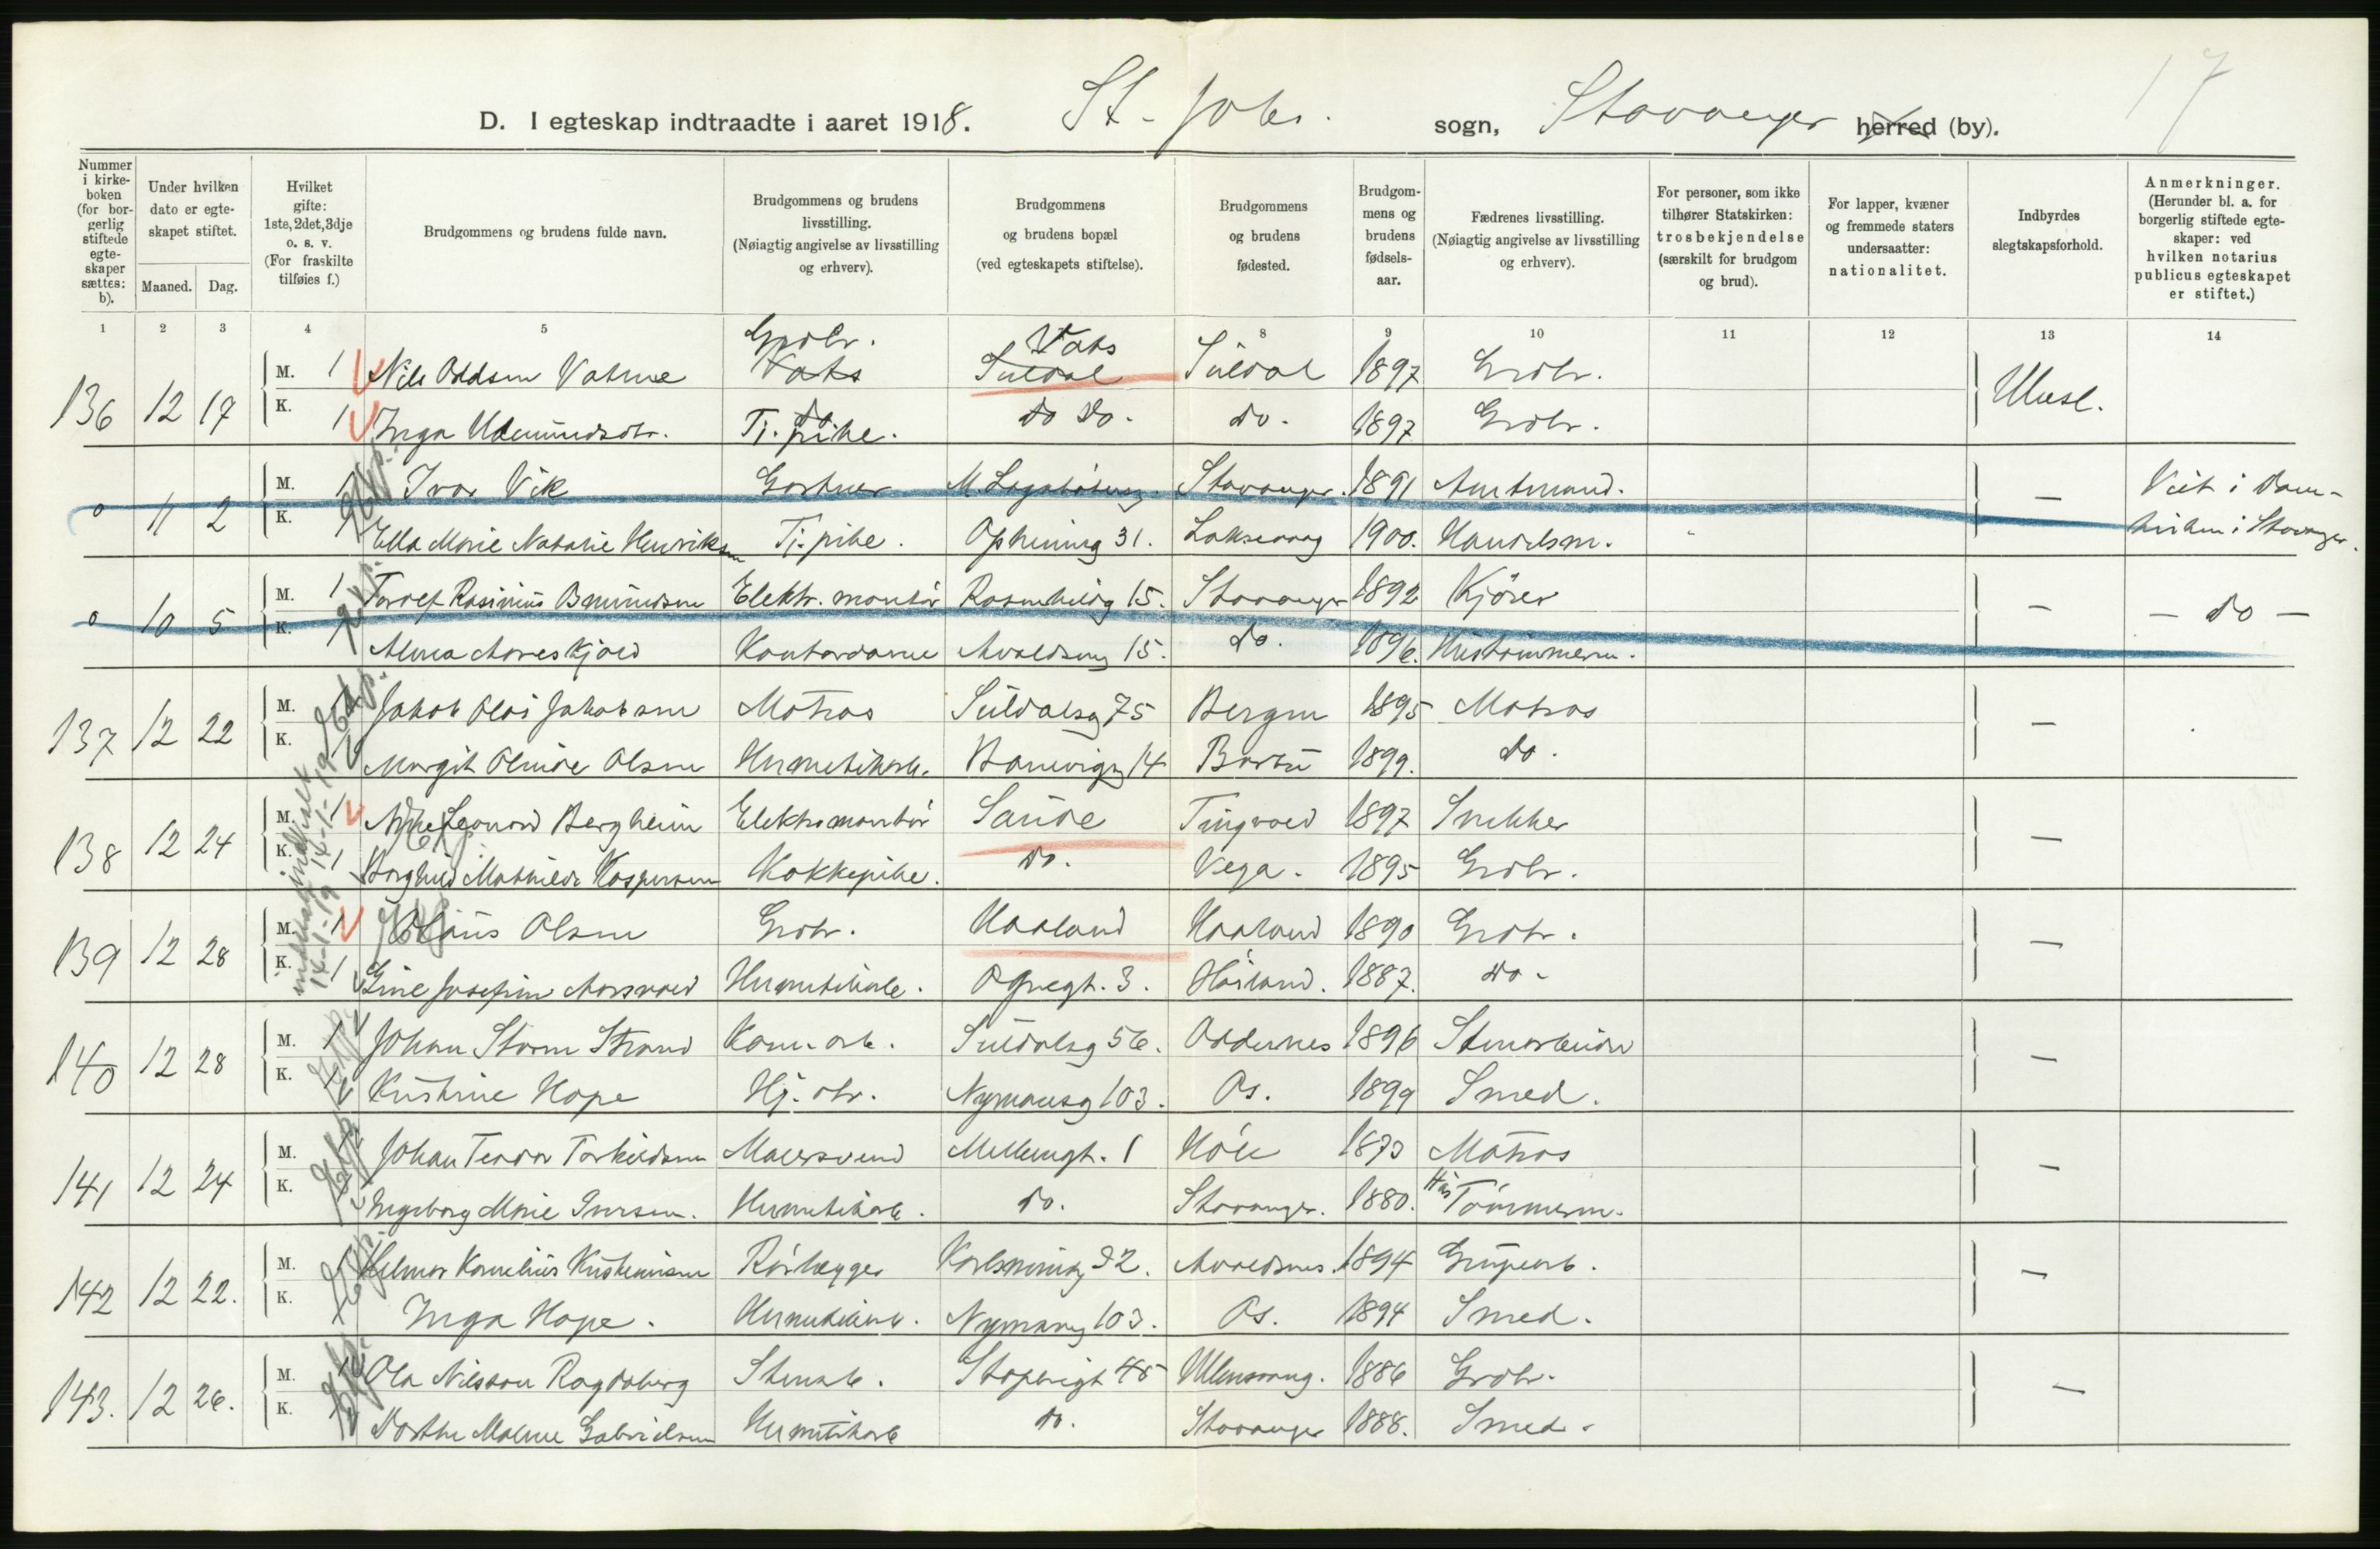 17
D. I egteskap indtraadte i aaret 1918. St. Joh. sogn, Stavanger herred (by).
Nummer i kirke-boken (for bor-gerlig stiftede egte-skaper sættes: b).
Under hvilken dato er egte-skapet stiftet.
Maaned. Dag.
Hvilket gifte: 1ste, 2det, 3dje o. s. v. (For fraskilte tilføies f.)
Brudgommens og brudens fulde navn.
Brudgommens og brudens livsstilling. (Nøiagtig angivelse av livsstilling og erhverv).
Brudgommens og brudens bopæl (ved egteskapets stiftelse).
Brudgommens og brudens fødested.
Brudgom-mens og brudens fødsels-aar.
Fædrenes livsstilling. (Nøiagtig angivelse av livsstilling og erhverv).
For personer, som ikke tilhører Statskirken: trosbekjendelse (særskilt for brudgom og brud).
For lapper, kvæner og fremmede staters undersaatter: nationalitet.
Indbyrdes slegtskapsforhold.
Anmerkninger. (Herunder bl. a. for borgerlig stiftede egte-skaper: ved hvilken notarius publicus egteskapet er stiftet.)
1 2 3 4 5 8 9 10 11 12 13 14
Grdbr. Vats
136 12 17 M. 1 Nils Oddsen Vatne Vats Suldal Suldal 1897 Grdbr. Ubesl.
K. 1 Inga Udmundsdtr. Tj. pike. do do. do. 1897 Grdbr.
o 11 2 M. 1 Ivar Vik Gartner Stavanger. 1891 Amtmand. — Viet i Dom-
K. 1 Ella Marie Natalie Henriksen Tj. pike. Opheimg 31. Laksevaag 1900. Handelsm. kirken i Stavanger.
o 10 5 M. 1 Torolf Rasinius Elektr. montør Rosenkildg 15. Stavanger 1892 Kjører — — do —
K. 1 Alma Kontordame Avaldsng 15. do. 1896. Hustømmerm.
137 12 22 M. 1 Jakob Olai Jakobsen Matros Suldalsg 75 Bergen 1895 Matros —
K. 1 Margit Olsen Hermetikarb. Banevigg 14 1899. do.
138 12 24 M. 1 Leonard Bergheim Elektromontør Saude Tingvold 1897 Snekker —
K. 1 Borghild Mathilde Kaspersen Kokkepike. do. Vega. 1895 Grdbr.
139 12 28 M. 1 Olaus Olsen Grdbr. Haaland Haaland 1890 Grdbr. —
K. 1 Gine Josefine Hermetikarb. 3. 1887. do.
140 12 28 M. 1 Johan Storm Strand arb. Suldalsg 56. Oddernes 1896 Stenarbeider —
K. 1 Kristine Hope Hj. dtr. Nymansg 103. Os. 1899 Smed.
141 12 24 M. 1 Johan Teodor Torkildsen Malersvend Møllergt. 1 Høle 1873 Matros —
K. Ingeborg Marie Iversen. Hermetikarb. do. Stavanger. 1880. Hus Tømmerm.
142 12 22. M. 1 Helmer Kornelius Kristensen Rørlægger Karlsming 32. Avaldsnes. 1894 Grubearb. —
K. Inga Hope. Hermetikarb. Nymansg 103. Os. 1894 Smed.
143. 12 26. M. 1 Ola Nilsson Ragdeberg Stenarb. 45 Ullensvang. 1886 Grdbr. —
K. 1 Dorthe Malene Gabrielsen Hermetikarb do. Stavanger 1888. Smed.